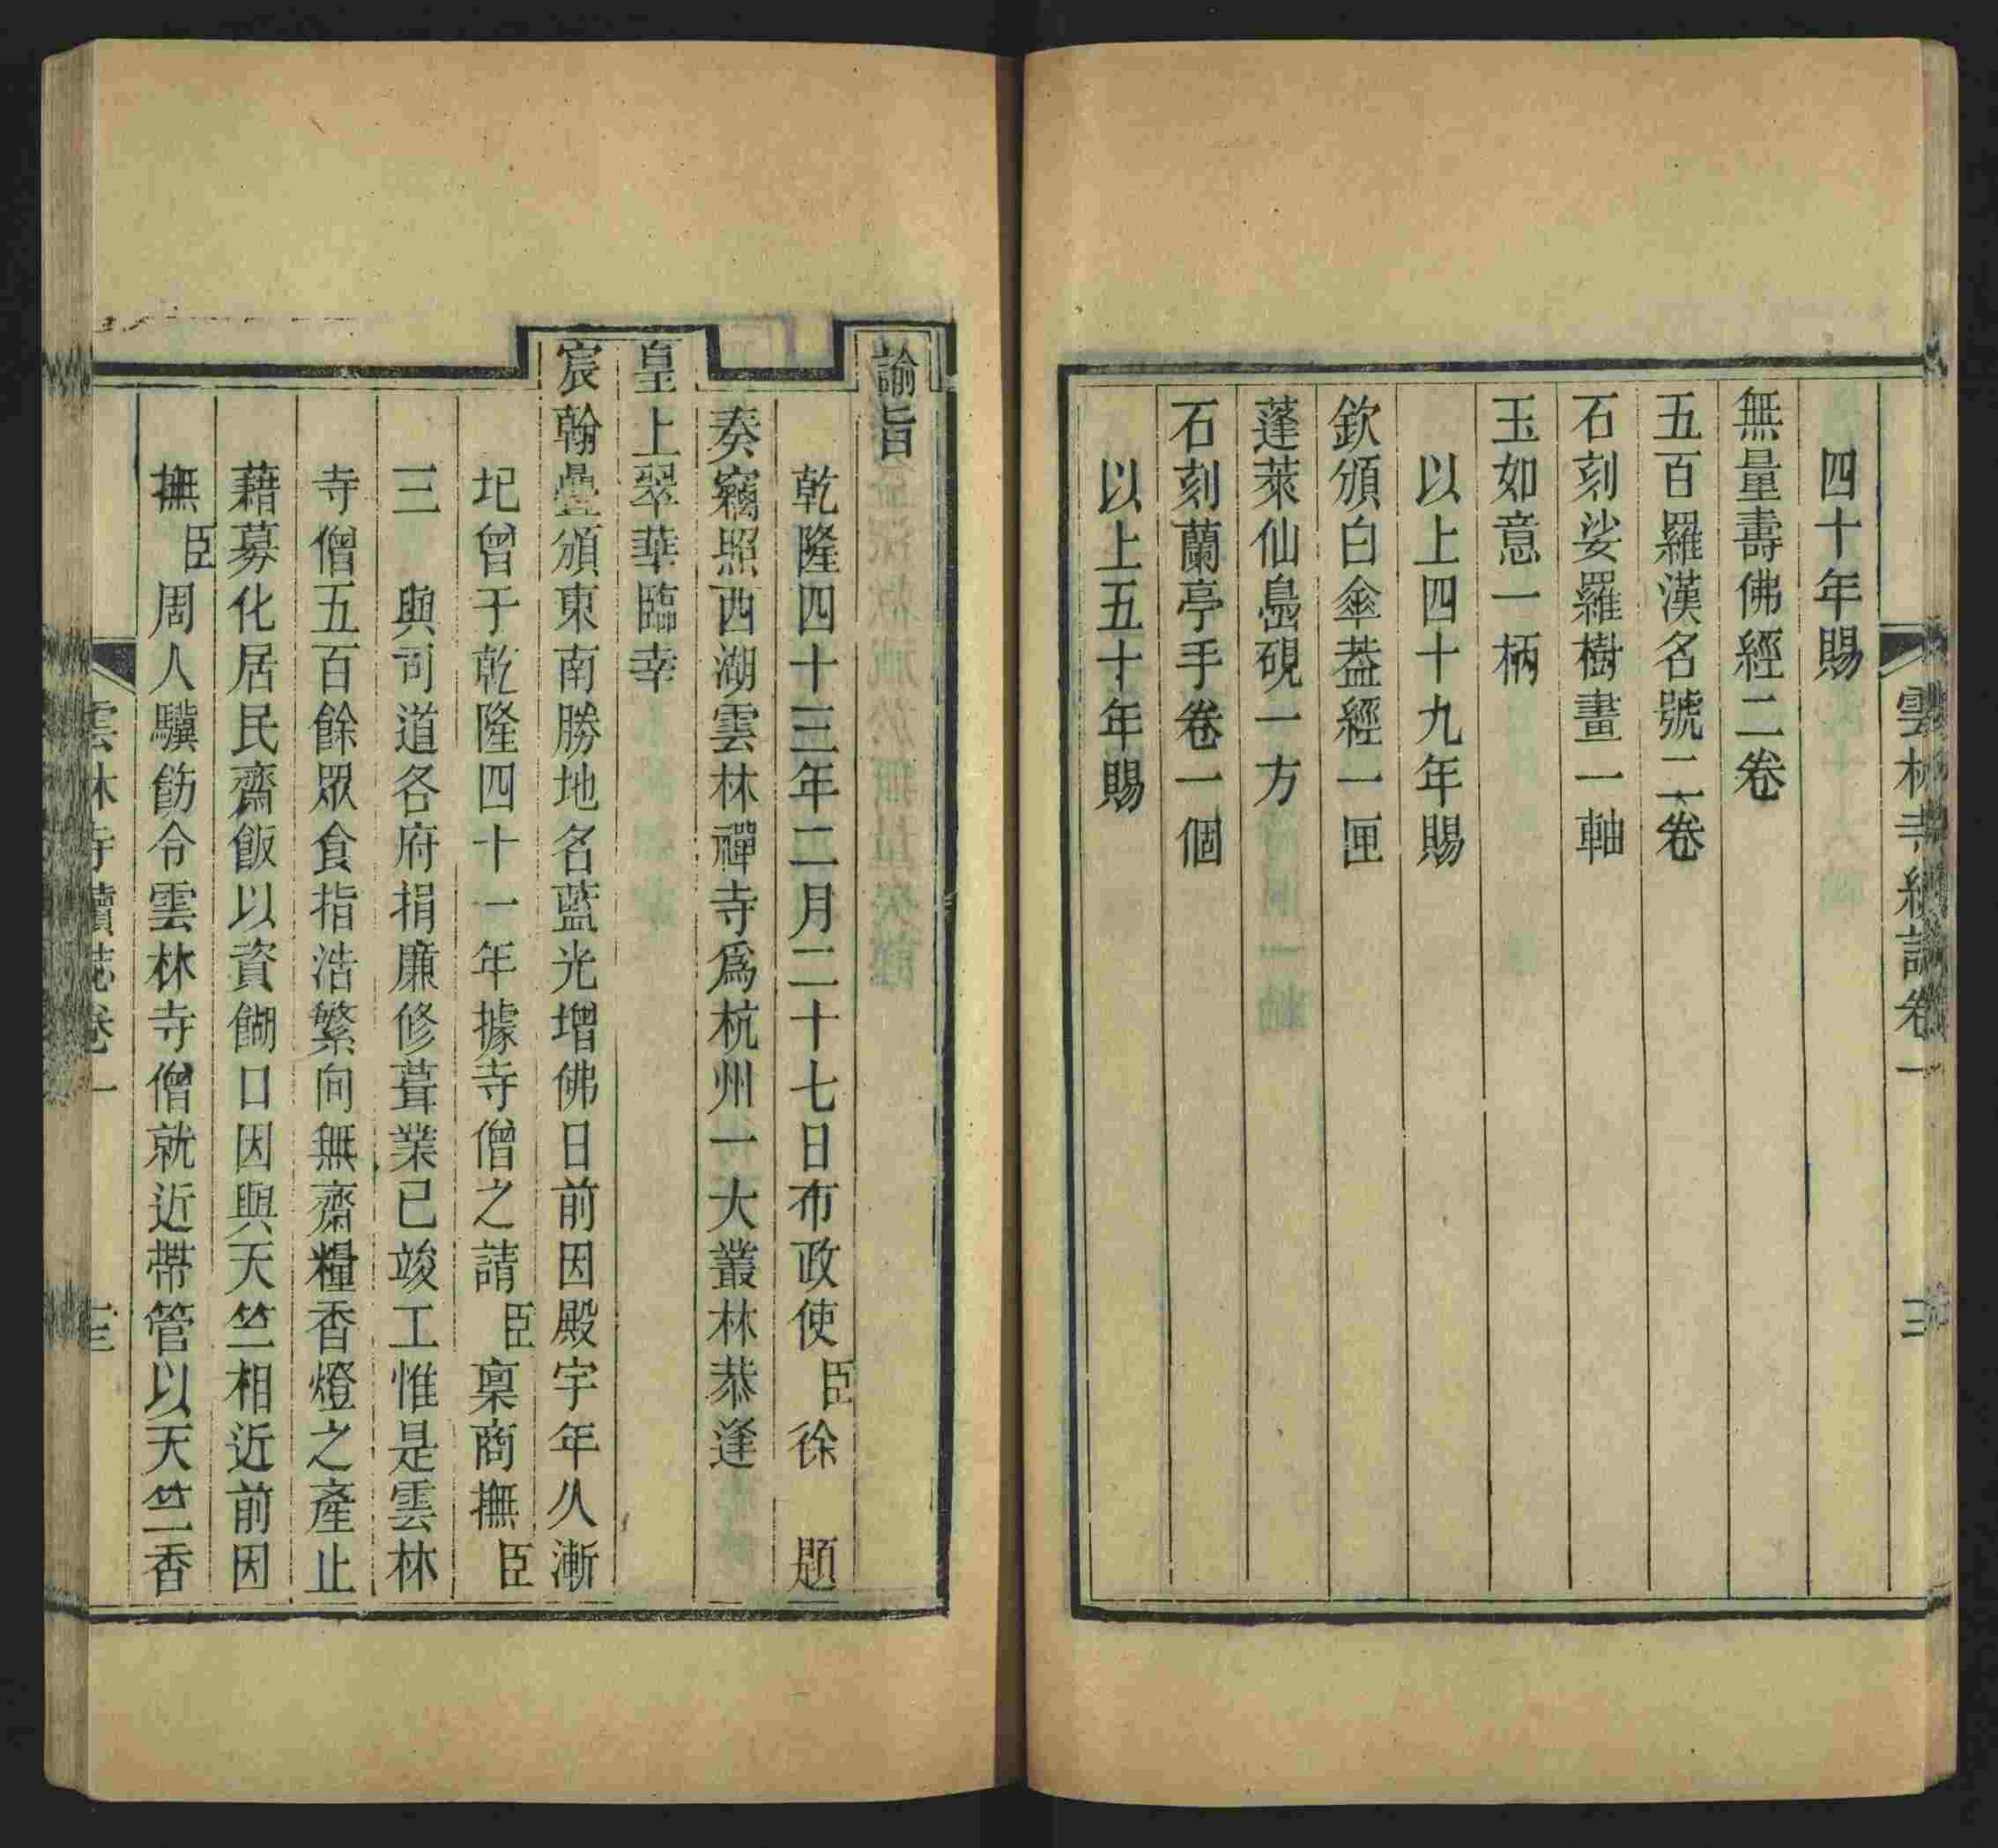 雲林寺續誌卷一
三
四十年賜
無量壽佛經二卷
五百羅漢名號二卷
石刻娑羅樹畫一軸
玉如意一柄
以上四十九年賜
欽頒白傘葢經一匣
蓬萊仙島硯一方
石刻蘭亭手卷一個
以上五十年賜
諭旨
乾隆四十三年二月二十七日布政使臣徐 題
奏竊照西湖雲林禪寺爲杭州一大叢林恭逢
皇上翠華臨幸
宸翰疊頒東南勝地名藍光增佛日前因殿宇年久漸
圮曾于乾隆四十一年據寺僧之請臣稟商撫臣
三 與司道各府捐廉修葺業已竣工惟是雲林
寺僧五百餘眾食指浩繁向無齋糧香燈之產止
藉募化居民齋飯以資餬口因與天竺相近前因
撫臣周人驥飭令雲林寺僧就近帶管以天竺香
雲林寺續誌卷一